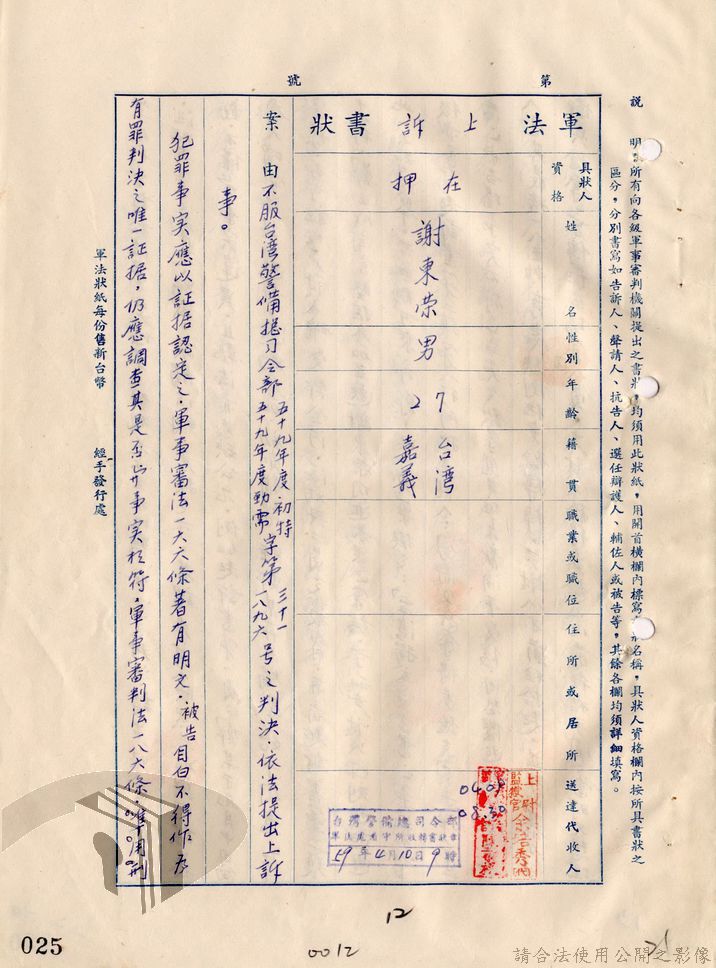 第　　　號
說　明：所有向各級軍事審判機關提出之書狀，均須用此狀紙，用開首橫欄內標寫書狀名稱，具狀人資格欄內按所具書狀之
區分，分別書寫如告訴人、聲請人、抗告人、選任辯護人、輔佐人或被告等，其餘各欄均須詳細填寫。
軍法上訴書狀
具狀人資格
姓名
性別
年齡
籍貫
職業或職位
住所或居所
送達代收人
在押
謝東荣
男
27
台湾
嘉義
案　由不服台湾警備搃司令部五十九年度初特字第三十一
五十九年度勁需字第一八九六号之判决．依法提出上訴
事。
犯罪事实應以証据認定之．軍事審法一六六條著有明文．被告自白不得作为
有罪判决之唯一証据，仍應調查其是否与事实相符．軍事審判法一六八條．
軍法狀紙每份售新台幣
經手發行處
上尉
監獄官
台灣警備總司令部
59年4月10日9時
12
0012
025
請合法使用公開之影像